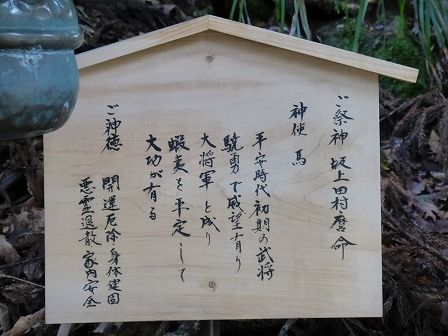 ご祭神 坂上田村麿命
神使 馬
平安時代初期の武将
驍勇で威望有り
大将軍と成り
蝦夷を平定して
大功が有る
ご神徳
開運厄除 身体健固
悪霊退散 家内安全